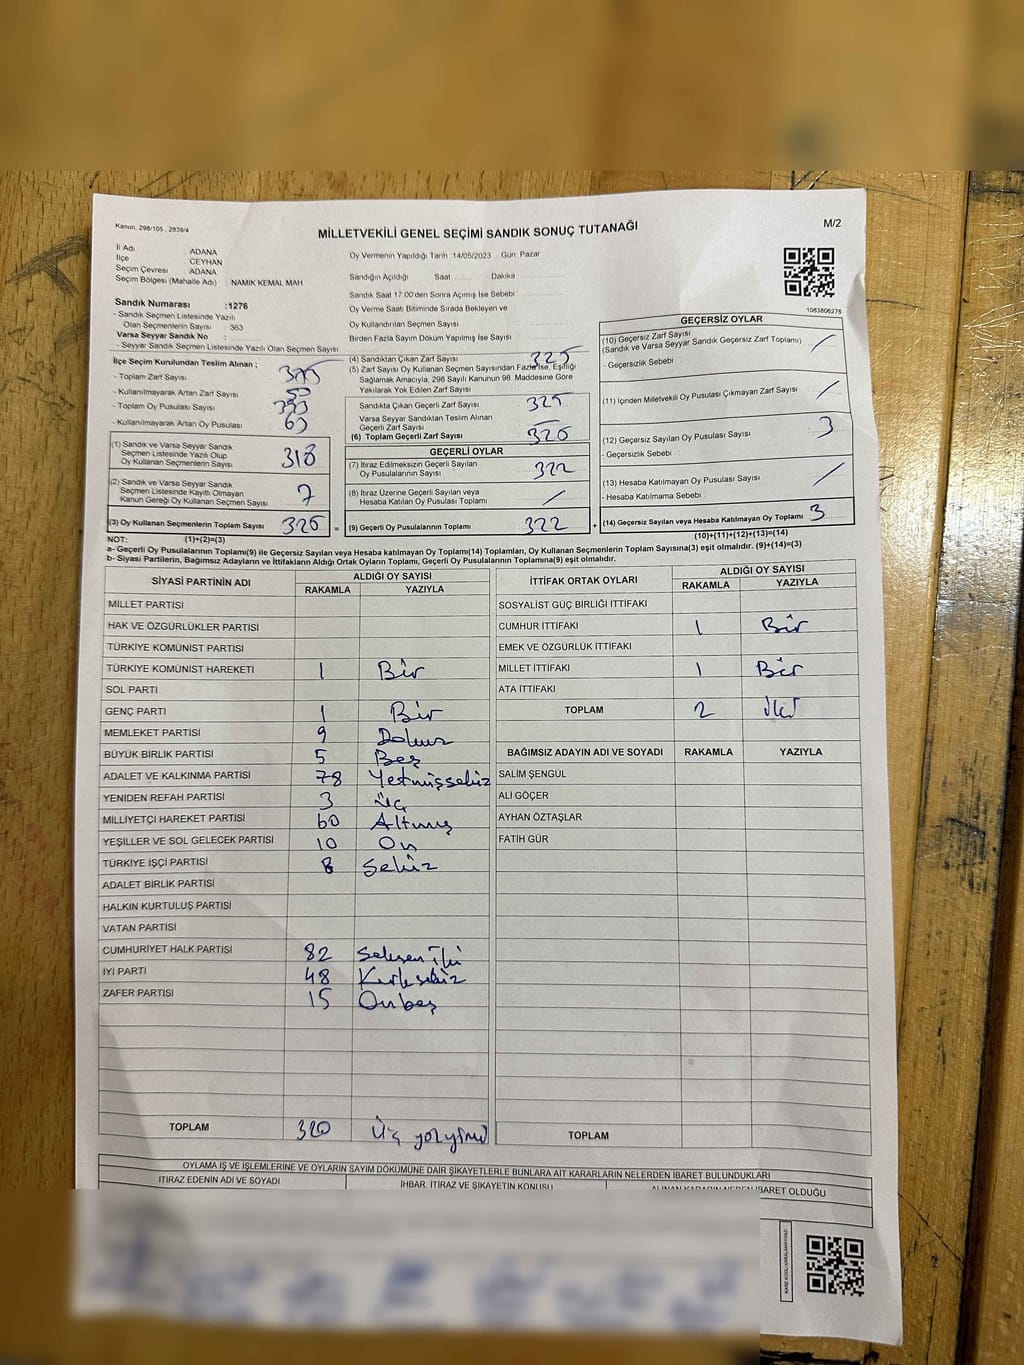 Kanun. 298/105 , 2839/4
MİLLETVEKİLİ GENEL SEÇİMİ SANDIK SONUÇ TUTANAĞI
M/2
İl Adı ADANA
İlçe CEYHAN
Seçim Çevresi ADANA
Seçim Bölgesi (Mahalle Adı) : NAMIK KEMAL MAH
Sandık Numarası :1276
- Sandık Seçmen Listesinde Yazılı
Olan Seçmenlerin Sayısı : 363
Varsa Seyyar Sandık No :
- Seyyar Sandık Seçmen Listesinde Yazılı Olan Seçmen Sayısı
Oy Vermenin Yapıldığı Tarih :14/05/2023 Gün: Pazar
Sandığın Açıldığı Saat Dakika
Sandık Saat 17:00'den Sonra Açımış İse Sebebi :
Oy Verme Saati Bitiminde Sırada Bekleyen ve
Oy Kullandırılan Seçmen Sayısı
Birden Fazla Sayım Döküm Yapılmış İse Sayısı
1083806278
İlçe Seçim Kurulundan Teslim Alınan ;
- Toplam Zarf Sayısı
- Kullanılmayarak Artan Zarf Sayısı
- Toplam Oy Pusulası Sayısı
- Kullanılmayarak Artan Oy Pusulası 63
(1) Sandık ve Varsa Seyyar Sandık
Seçmen Listesinde Yazılı Olup
Oy Kullanan Seçmenlerin Sayısı 318
(2) Sandık ve Varsa Seyyar Sandık
Seçmen Listesinde Kayıtlı Olmayan
Kanun Gereği Oy Kullanan Seçmen Sayısı 7
(3) Oy Kullanan Seçmenlerin Toplam Sayısı 325 =
(4) Sandıktan Çıkan Zarf Sayısı 325
(5) Zarf Sayısı Oy Kullanan Seçmen Sayısından Fazla İse, Eşitliği
Sağlamak Amacıyla, 298 Sayılı Kanunun 98. Maddesine Göre
Yakılarak Yok Edilen Zarf Sayısı
Sandıkta Çıkan Geçerli Zarf Sayısı 325
Varsa Seyyar Sandıktan Teslim Alınan
Geçerli Zarf Sayısı
(6) Toplam Geçerli Zarf Sayısı 325
GEÇERLİ OYLAR
(7) İtiraz Edilmeksizin Geçerli Sayılan
Oy Pusulalarının Sayısı 322
(8) İtiraz Üzerine Geçerli Sayılan veya
Hesaba Katılan Oy Pusulası Toplamı /
(9) Geçerli Oy Pusulalarının Toplamı 322 +
GEÇERSİZ OYLAR
(10) Geçersiz Zarf Sayısı
(Sandık ve Varsa Seyyar Sandık Geçersiz Zarf Toplamı) /
- Geçersizlik Sebebi :
(11) İçinden Milletvekili Oy Pusulası Çıkmayan Zarf Sayısı /
(12) Geçersiz Sayılan Oy Pusulası Sayısı 3
- Geçersizlik Sebebi :
(13) Hesaba Katılmayan Oy Pusulası Sayısı /
- Hesaba Katılmama Sebebi :
(14) Geçersiz Sayılan veya Hesaba Katılmayan Oy Toplamı 3
NOT: (1)+(2)=(3)
(10)+(11)+(12)+(13)=(14)
a- Geçerli Oy Pusulalarının Toplamı(9) ile Geçersiz Sayılan veya Hesaba katılmayan Oy Toplamı(14) Toplamları, Oy Kullanan Seçmenlerin Toplam Sayısına(3) eşit olmalıdır. (9)+(14)=(3)
b- Siyasi Partilerin, Bağımsız Adayların ve İttifakların Aldığı Ortak Oyların Toplamı, Geçerli Oy Pusulalarının Toplamına(9) eşit olmalıdır.
SİYASİ PARTİNİN ADI ALDIĞI OY SAYISI
RAKAMLA YAZIYLA
MİLLET PARTİSİ
HAK VE ÖZGÜRLÜKLER PARTİSİ
TÜRKİYE KOMÜNİST PARTİSİ
TÜRKİYE KOMÜNİST HAREKETİ 1 Bir
SOL PARTİ
GENÇ PARTİ 1 Bir
MEMLEKET PARTİSİ 9 Dokuz
BÜYÜK BİRLİK PARTİSİ 5 Beş
ADALET VE KALKINMA PARTİSİ 78 Yetmişsekiz
YENİDEN REFAH PARTİSİ 3 üç
MİLLİYETÇİ HAREKET PARTİSİ 60 Altmış
YEŞİLLER VE SOL GELECEK PARTİSİ 10 On
TÜRKİYE İŞÇİ PARTİSİ 8 Sekiz
ADALET BİRLİK PARTİSİ
HALKIN KURTULUŞ PARTİSİ
VATAN PARTİSİ
CUMHURİYET HALK PARTİSİ 82 Seksen iki
İYİ PARTİ 48 Kırksekiz
ZAFER PARTİSİ 15 Onbeş
TOPLAM 320 Üç yüzyirmi
İTTİFAK ORTAK OYLARI ALDIĞI OY SAYISI
RAKAMLA YAZIYLA
SOSYALİST GÜÇ BİRLİĞİ İTTİFAKI
CUMHUR İTTİFAKI 1 Bir
EMEK VE ÖZGÜRLÜK İTTİFAKI
MİLLET İTTİFAKI 1 Bir
ATA İTTİFAKI
TOPLAM 2 iki
BAĞIMSIZ ADAYIN ADI VE SOYADI RAKAMLA YAZIYLA
SALİM ŞENGÜL
ALİ GÖÇER
AYHAN ÖZTAŞLAR
FATİH GÜR
TOPLAM
OYLAMA İŞ VE İŞLEMLERİNE VE OYLARIN SAYIM DÖKÜMÜNE DAİR ŞİKAYETLERLE BUNLARA AİT KARARLARIN NELERDEN İBARET BULUNDUKLARI
İTİRAZ EDENİN ADI VE SOYADI İHBAR, İTİRAZ VE ŞİKAYETİN KONUSU ALINAN KARARIN NEDEN İBARET OLDUĞU